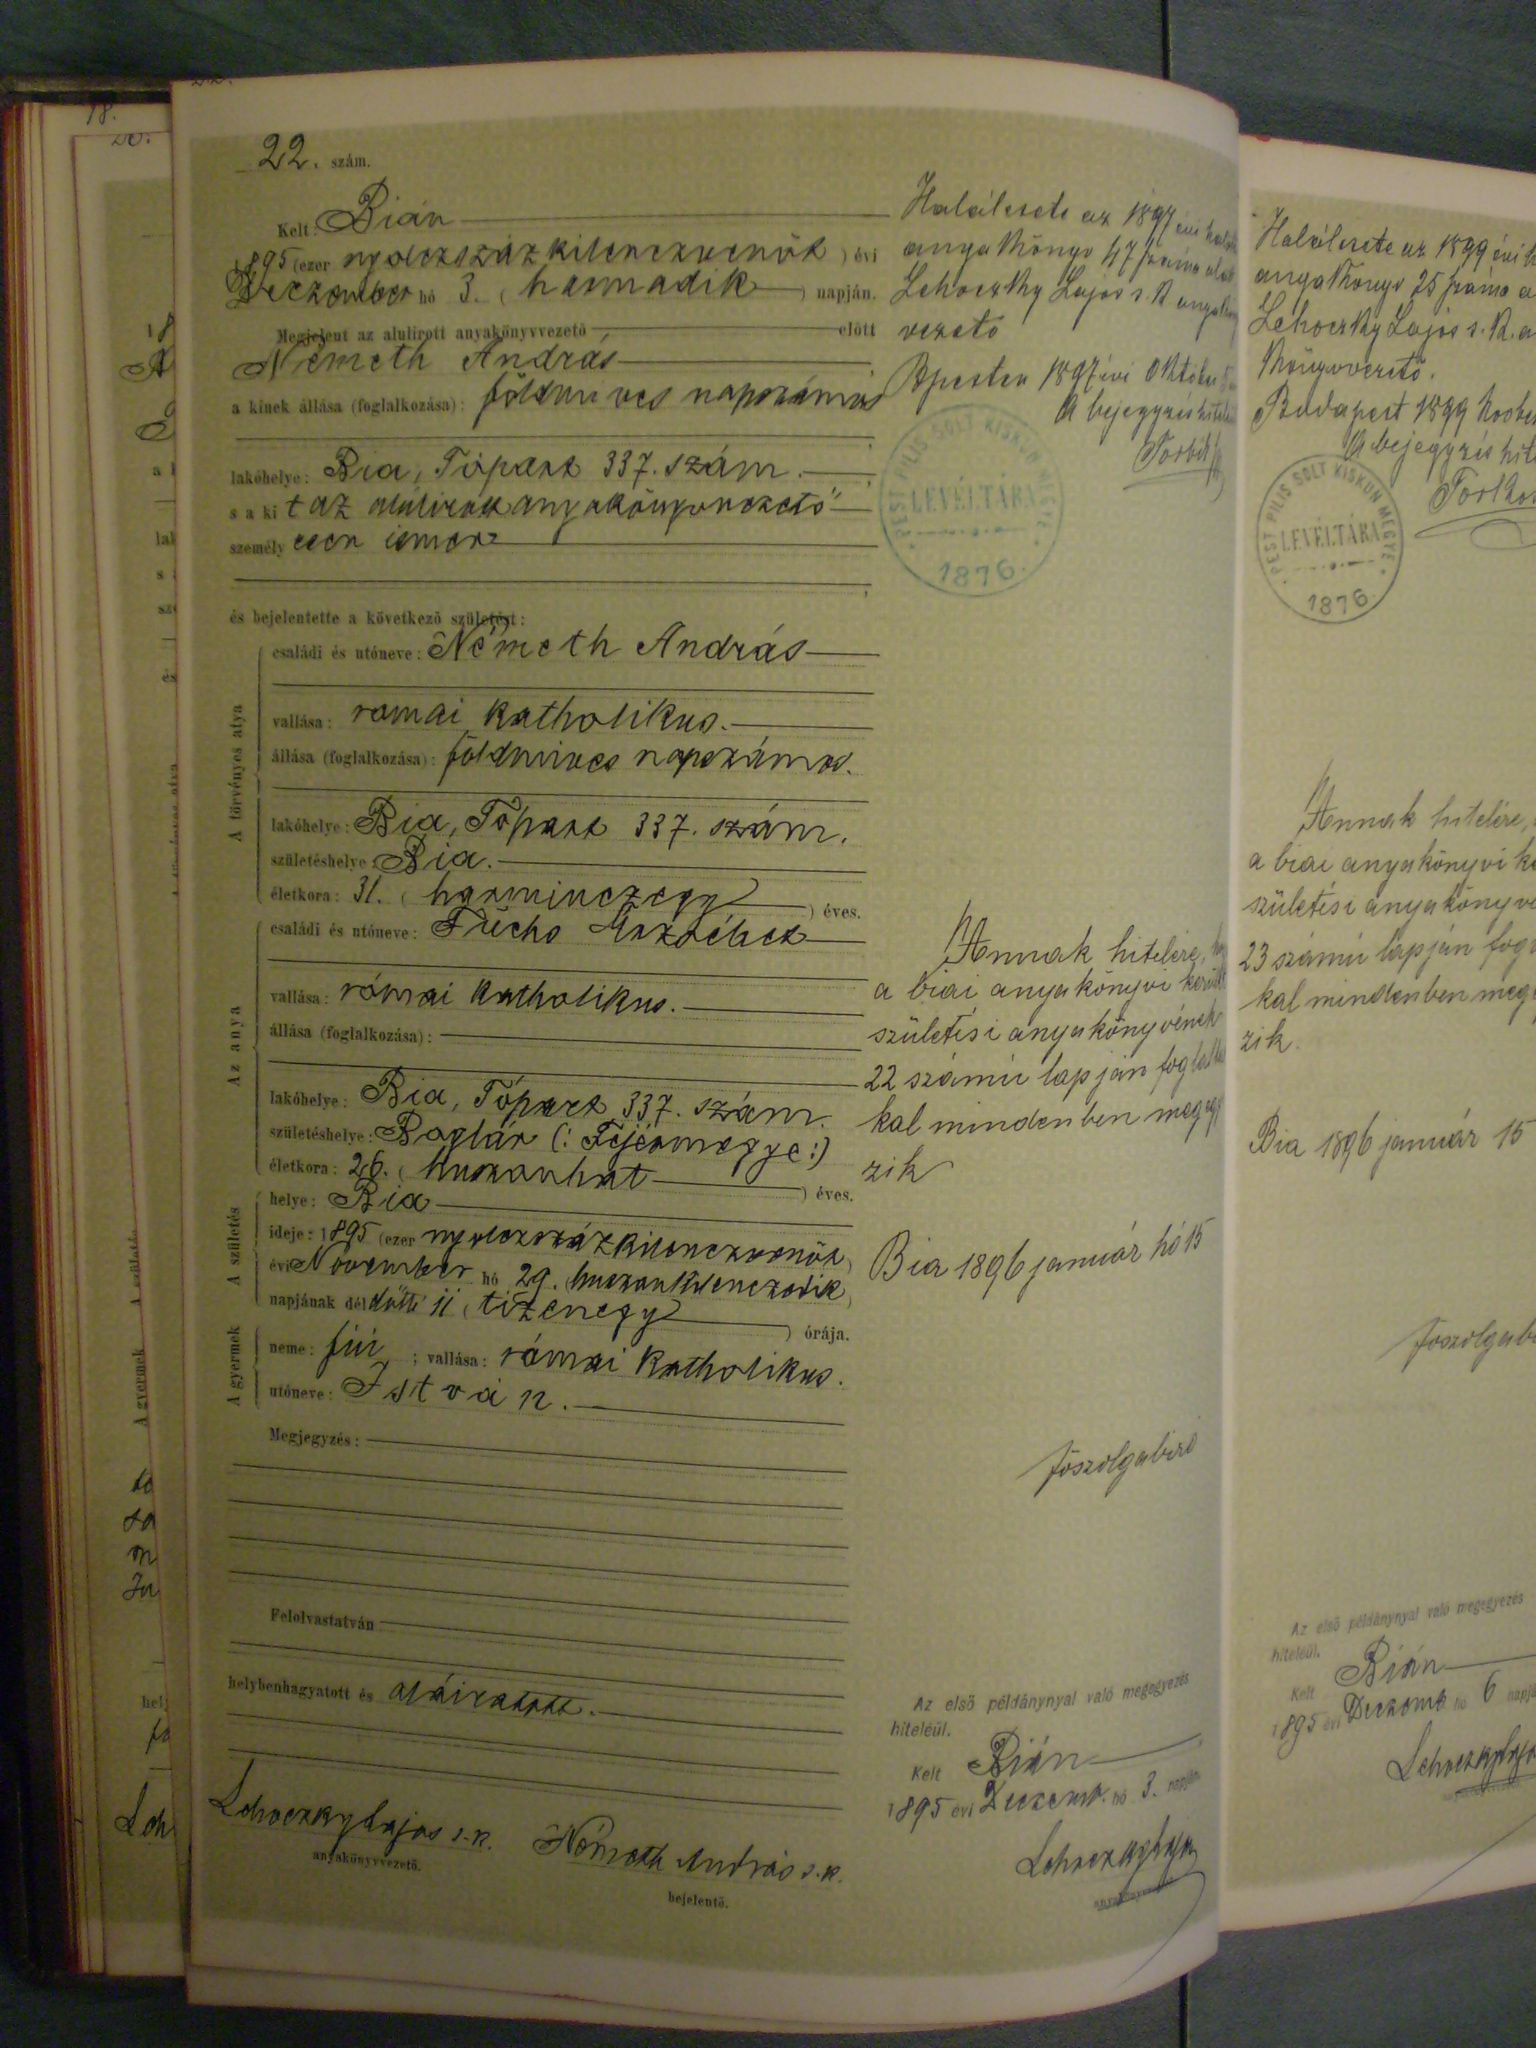 22. szám.
Kelt: Bián
1895 (ezer nyolczszázkilenczvenöt) évi
Deczember hó 3. (harmadik) napján.
Megjelent az alulirott anyakönyvvezető előtt
Németh András
a kinek állása (foglalkozása): földmives napszámos
lakóhelye: Bia, Tópart 337. szám.
s a kit az alulirott anyakönyvvezető
személyesen ismer
és bejelentette a következő születést:
A törvényes atya
családi és utóneve: Németh András
vallása: romai katholikus.
állása (foglalkozása): földmives napszámos.
lakóhelye: Bia, Tópart 337. szám.
születéshelye: Bia.
életkora: 31. (harminczegy) éves.
Az anya
családi és utóneve: Fuchs Erzsébet
vallása: római katholikus.
állása (foglalkozása):
lakóhelye: Bia, Tópart 337. szám.
születéshelye: Boglár (: Fejérmegye :)
életkora: 26. (huszonhat) éves.
A születés
helye: Bia
ideje: 1895 (ezer nyolczszázkilenczvenöt)
évi November hó 29. (huszonkilenczedik)
napjának délelőtti 11 (tizenegy) órája.
A gyermek
neme: fiú ; vallása: római katholikus.
utóneve: István.
Megjegyzés:
Felolvastatván
helybenhagyatott és aláiratott.
Lehoczky Lajos s. k.
anyakönyvvezető.
Németh András s. k.
bejelentő.
Halálesete az 1897 évi
anyakönyv 47 száma alatt
Lehoczky Lajos s. k.
vezető
Bpesten 1897 évi Október
A bejegyzés
PEST PILIS SOLT KISKUN MEGYE
LEVÉLTÁRA
1876.
Annak hitelére,
a biai anyakönyvi
születési anyakönyvének
22 számú lapján
kal mindenben
zik
Bia 1896 január hó 15
főszolgabiró
Az első példánynyal való megegyezés
hiteléül.
Kelt Bián
1895 évi Deczemb. hó 3. napján
Lehoczky Lajos
Halálesete az 1899 évi
anyakönyv 25 száma
Lehoczky Lajos s. k. a
könyvvezető.
Budapest 1899
A bejegyzés
PEST PILIS SOLT KISKUN MEGYE
LEVÉLTÁRA
1876.
Annak hitelére,
a biai anyakönyvi
születési
23 számú lapján
kal mindenben
zik.
Bia 1896 január 15
Az első példánynyal való megegyezés
hiteléül.
Kelt Bián
1895 évi Deczemb. hó 6
18.